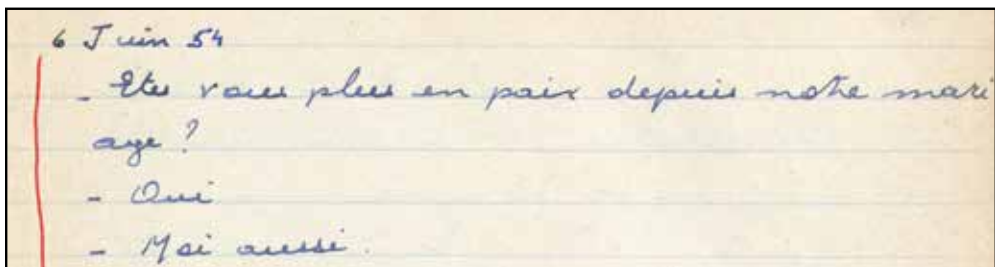 6 Juin 54
- Etes vous plus en paix depuis notre mari
age ?
- Oui
- Moi aussi.